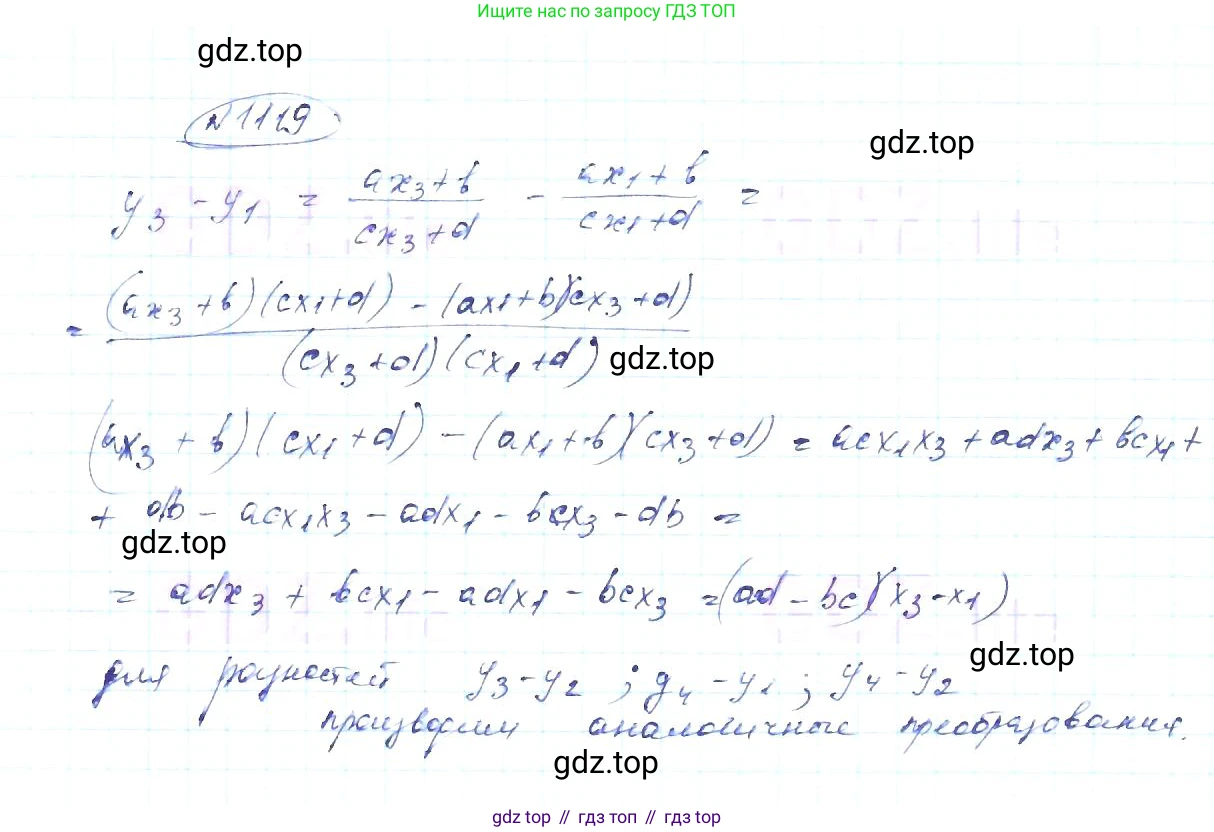 Ищите нас по запросу ГДЗ ТОП
gdz.top
N 1119
gdz.top
y₃ - y₁ = (ax₃ + b)/(cx₃ + d) - (ax₁ + b)/(cx₁ + d) =
= ((ax₃ + b)(cx₁ + d) - (ax₁ + b)(cx₃ + d))/((cx₃ + d)(cx₁ + d))
gdz.top
(ax₃ + b)(cx₁ + d) - (ax₁ + b)(cx₃ + d) = acx₁x₃ + adx₃ + bcx₁ +
+ db - acx₁x₃ - adx₁ - bcx₃ - db =
gdz.top
= adx₃ + bcx₁ - adx₁ - bcx₃ = (ad - bc)(x₃ - x₁)
gdz.top
для разностей y₃ - y₂ ; y₄ - y₁ ; y₄ - y₂
производим аналогичные преобразования.
gdz.top
gdz.top // гдз топ // gdz top // гдз топ